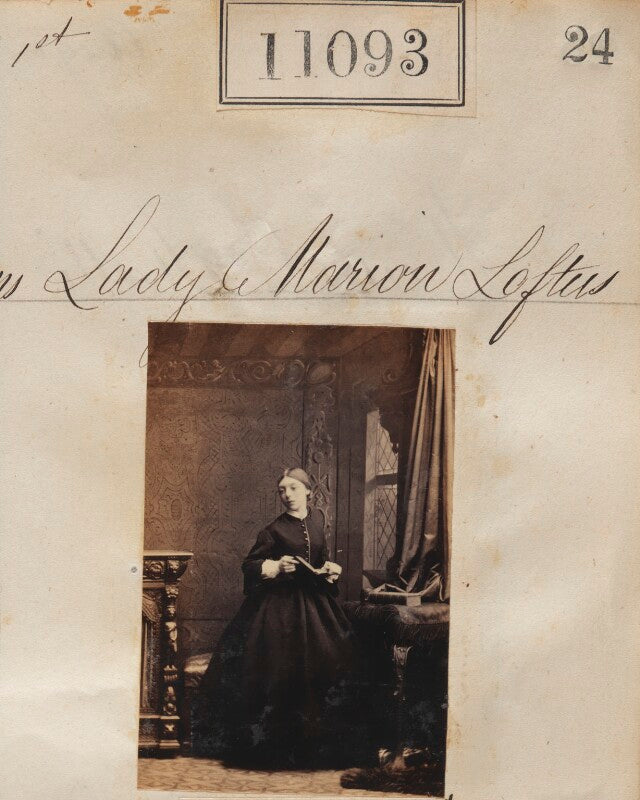 1st
11093
24
Lady Marion Loftus